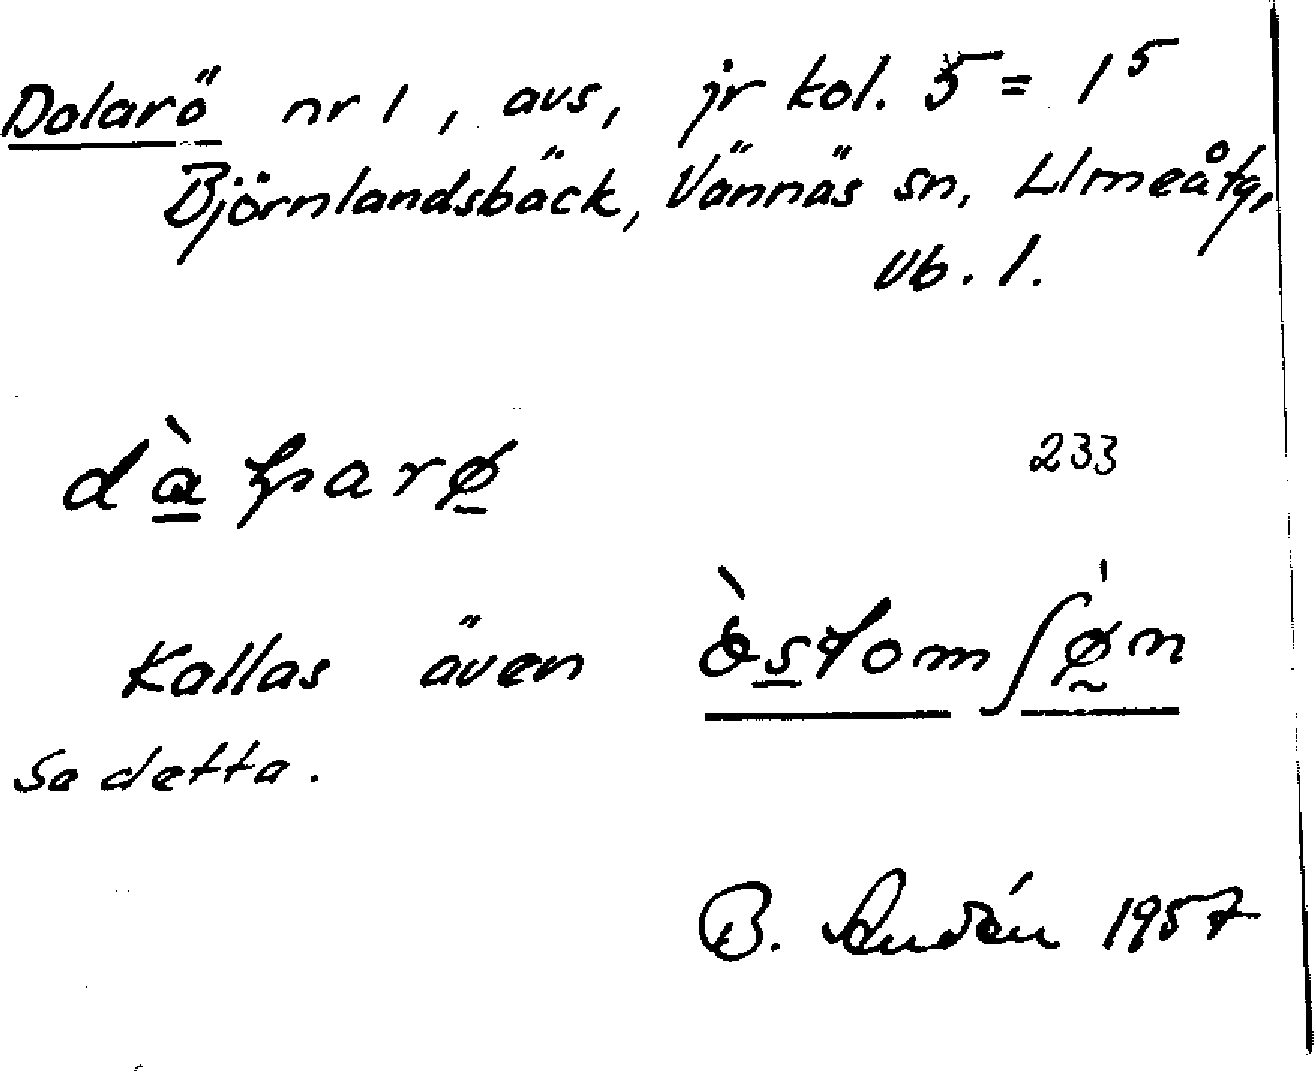 Dalarö nr 1, avs, jr kol. 5 = 1⁵
Björnlandsbäck, Vännäs sn, Umeå tg,
Vb. l.
233
Kallas även òstom ʃø̀n
se detta.
B. 1957